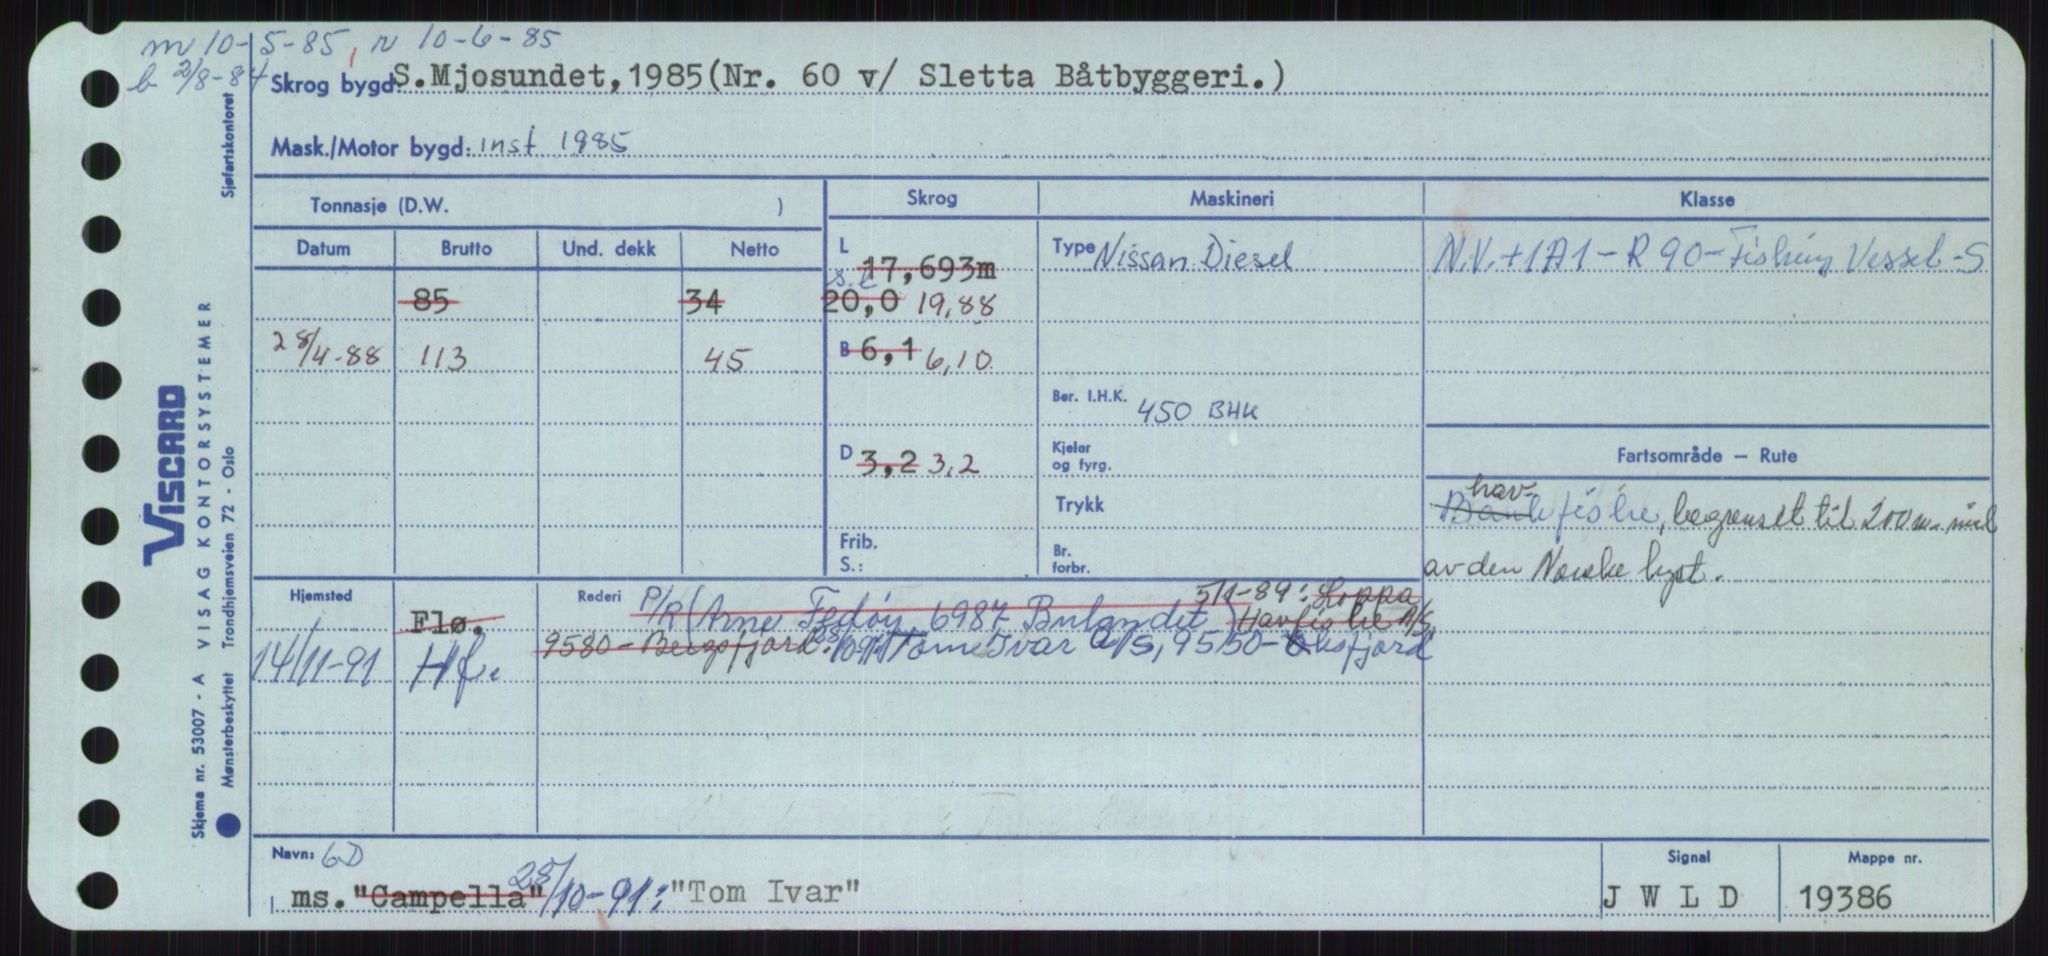 m 10-5-85, n 10-6-85
b 2/8-84
Skrog bygd: S.Mjosundet, 1985(Nr. 60 v/ Sletta Båtbyggeri.)
Mask./Motor bygd: inst 1985
Tonnasje (D.W. )
Skrog
Maskineri
Klasse
Datum Brutto Und. dekk Netto
L 17,693m
Type Nissan Diesel
N.V. +1A1-R90-Fishing Vessel-S
85 34
s.l 20,0 19,88
28/4-88 113 45
B 6,1 6,10
Ber. I.H.K. 450 BHK
D 3,2 3,2
Kjeler
og fyrg.
Fartsområde — Rute
Trykk
hav
Bankfiske, begrenset til 200 n. mil
av den Norske kyst.
Frib.
S.:
Br.
forbr.
Hjemsted
Flø.
14/11-91 Hf.
Rederi P/R (Arne Fedøy, 6987 Bulandet) 5/1-89: Loppa
Havfiske A/S,
9580-Bergsfjord. 28/10-91: Tom Ivar A/S, 9550-Øksfjord
Navn: 6D
ms. "Campella" 28/10-91: "Tom Ivar"
Signal
J W L D
Mappe nr.
19386
Sjøfartskontoret
VISCARD
VISAG KONTORSYSTEMER
Skjema nr. 53007 - A
Mønsterbeskyttet Trondhjemsveien 72 - Oslo